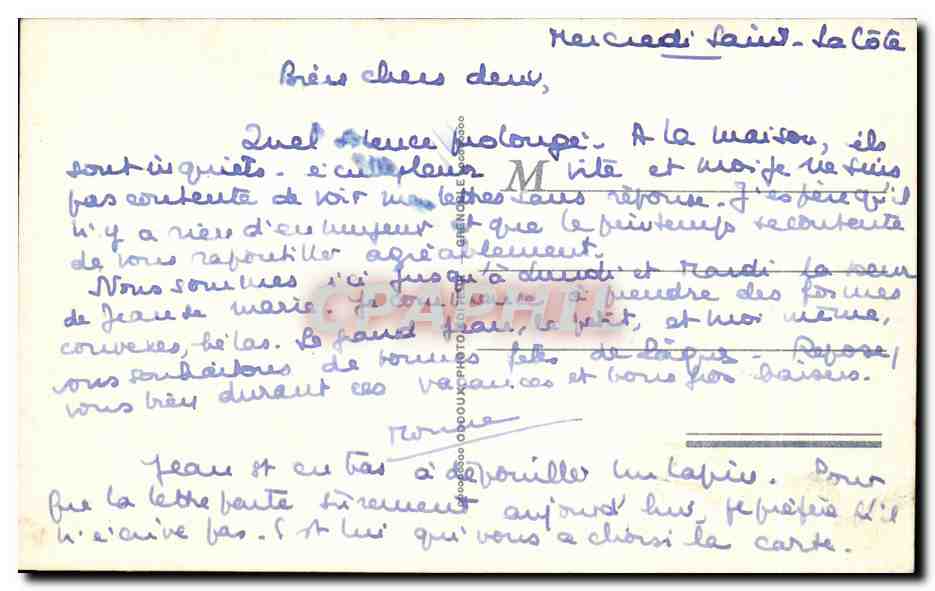 Mercredi Saint - La Côte
Bien chers deux,
Quel silence prolongé. A la maison, ils
sont inquiets - écrivez leur vite et moi je ne suis
M
pas contente de voir mes lettres sans réponse. J'espère qu'il
n'y a rien d'ennuyeux et que le printemps se contente
de vous ravigoter agréablement.
Nous sommes ici jusqu'à lundi et Mardi la soeur
de Jean se marie. Je commence à prendre des formes
convexes, hélas. Le grand Jean, le petit, et moi même,
vous souhaitons de bonnes fêtes de Pâques - Reposez
vous bien durant ces vacances et bons gros baisers.
Jean est en bas à dépouiller un lapin. Pour
que la lettre parte sûrement aujourd'hui, je préfère qu'il
n'écrive pas. C'est lui qui vous a choisi la carte.
CPAPHIL
GRENOBLE